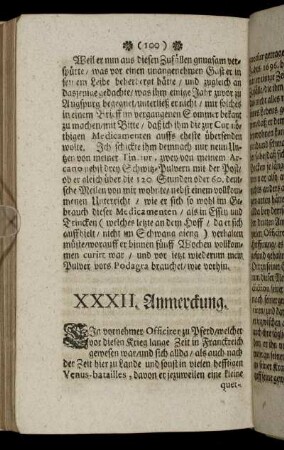 (100)
Weil er nun aus diesen Zufällen gnugsam ver-
spührte / was vor einen unangenehmen Gast er in
seinem Leibe beherberget hätte / und zugleich an
das jenige gedachte / was ihm einige Jahr zuvor zu
Augspurg begegnet / unterließ er nicht / mir solches
in einem Brieff im vergangenen Sommer bekant
zu machen / mit Bitte / daß ich ihm die zur Cur nö-
thigen Medicamenten auffs eheste übersenden
wolte. Ich schickte ihm demnach nur neun Un-
tzen von meiner Tinctur, zwey von meinem Ar-
cano nebst drey Schwitz-Pulvern mit der Post /
ob er gleich über die 120 Stunden oder 60. deutsche
Meilen von mir wohnte / nebst einem vollkom-
menen Unterricht / wie er sich so wohl im Ge-
brauch dieser Medicamenten / als in Essen und
Trincken (welches letzte an dem Hoff / da er sich
auffhielt / nicht im Schwang gieng) verhalten
müste / worauff er binnen fünff Wochen vollkom-
men curirt war / und vor jetzt wiederum mein
Pulver vors Podagra brauchet / wie vorhin.
XXXII. Anmerckung.
Ein vornehmer Officirer zu Pferd / welcher
vor diesen Krieg lange Zeit in Franckreich
gewesen war / und sich allda / als auch nach
der Zeit hier zu Lande und sonst in vielen hefftigen
Venus-batailles, davon er jezuweilen eine kleine
quet-